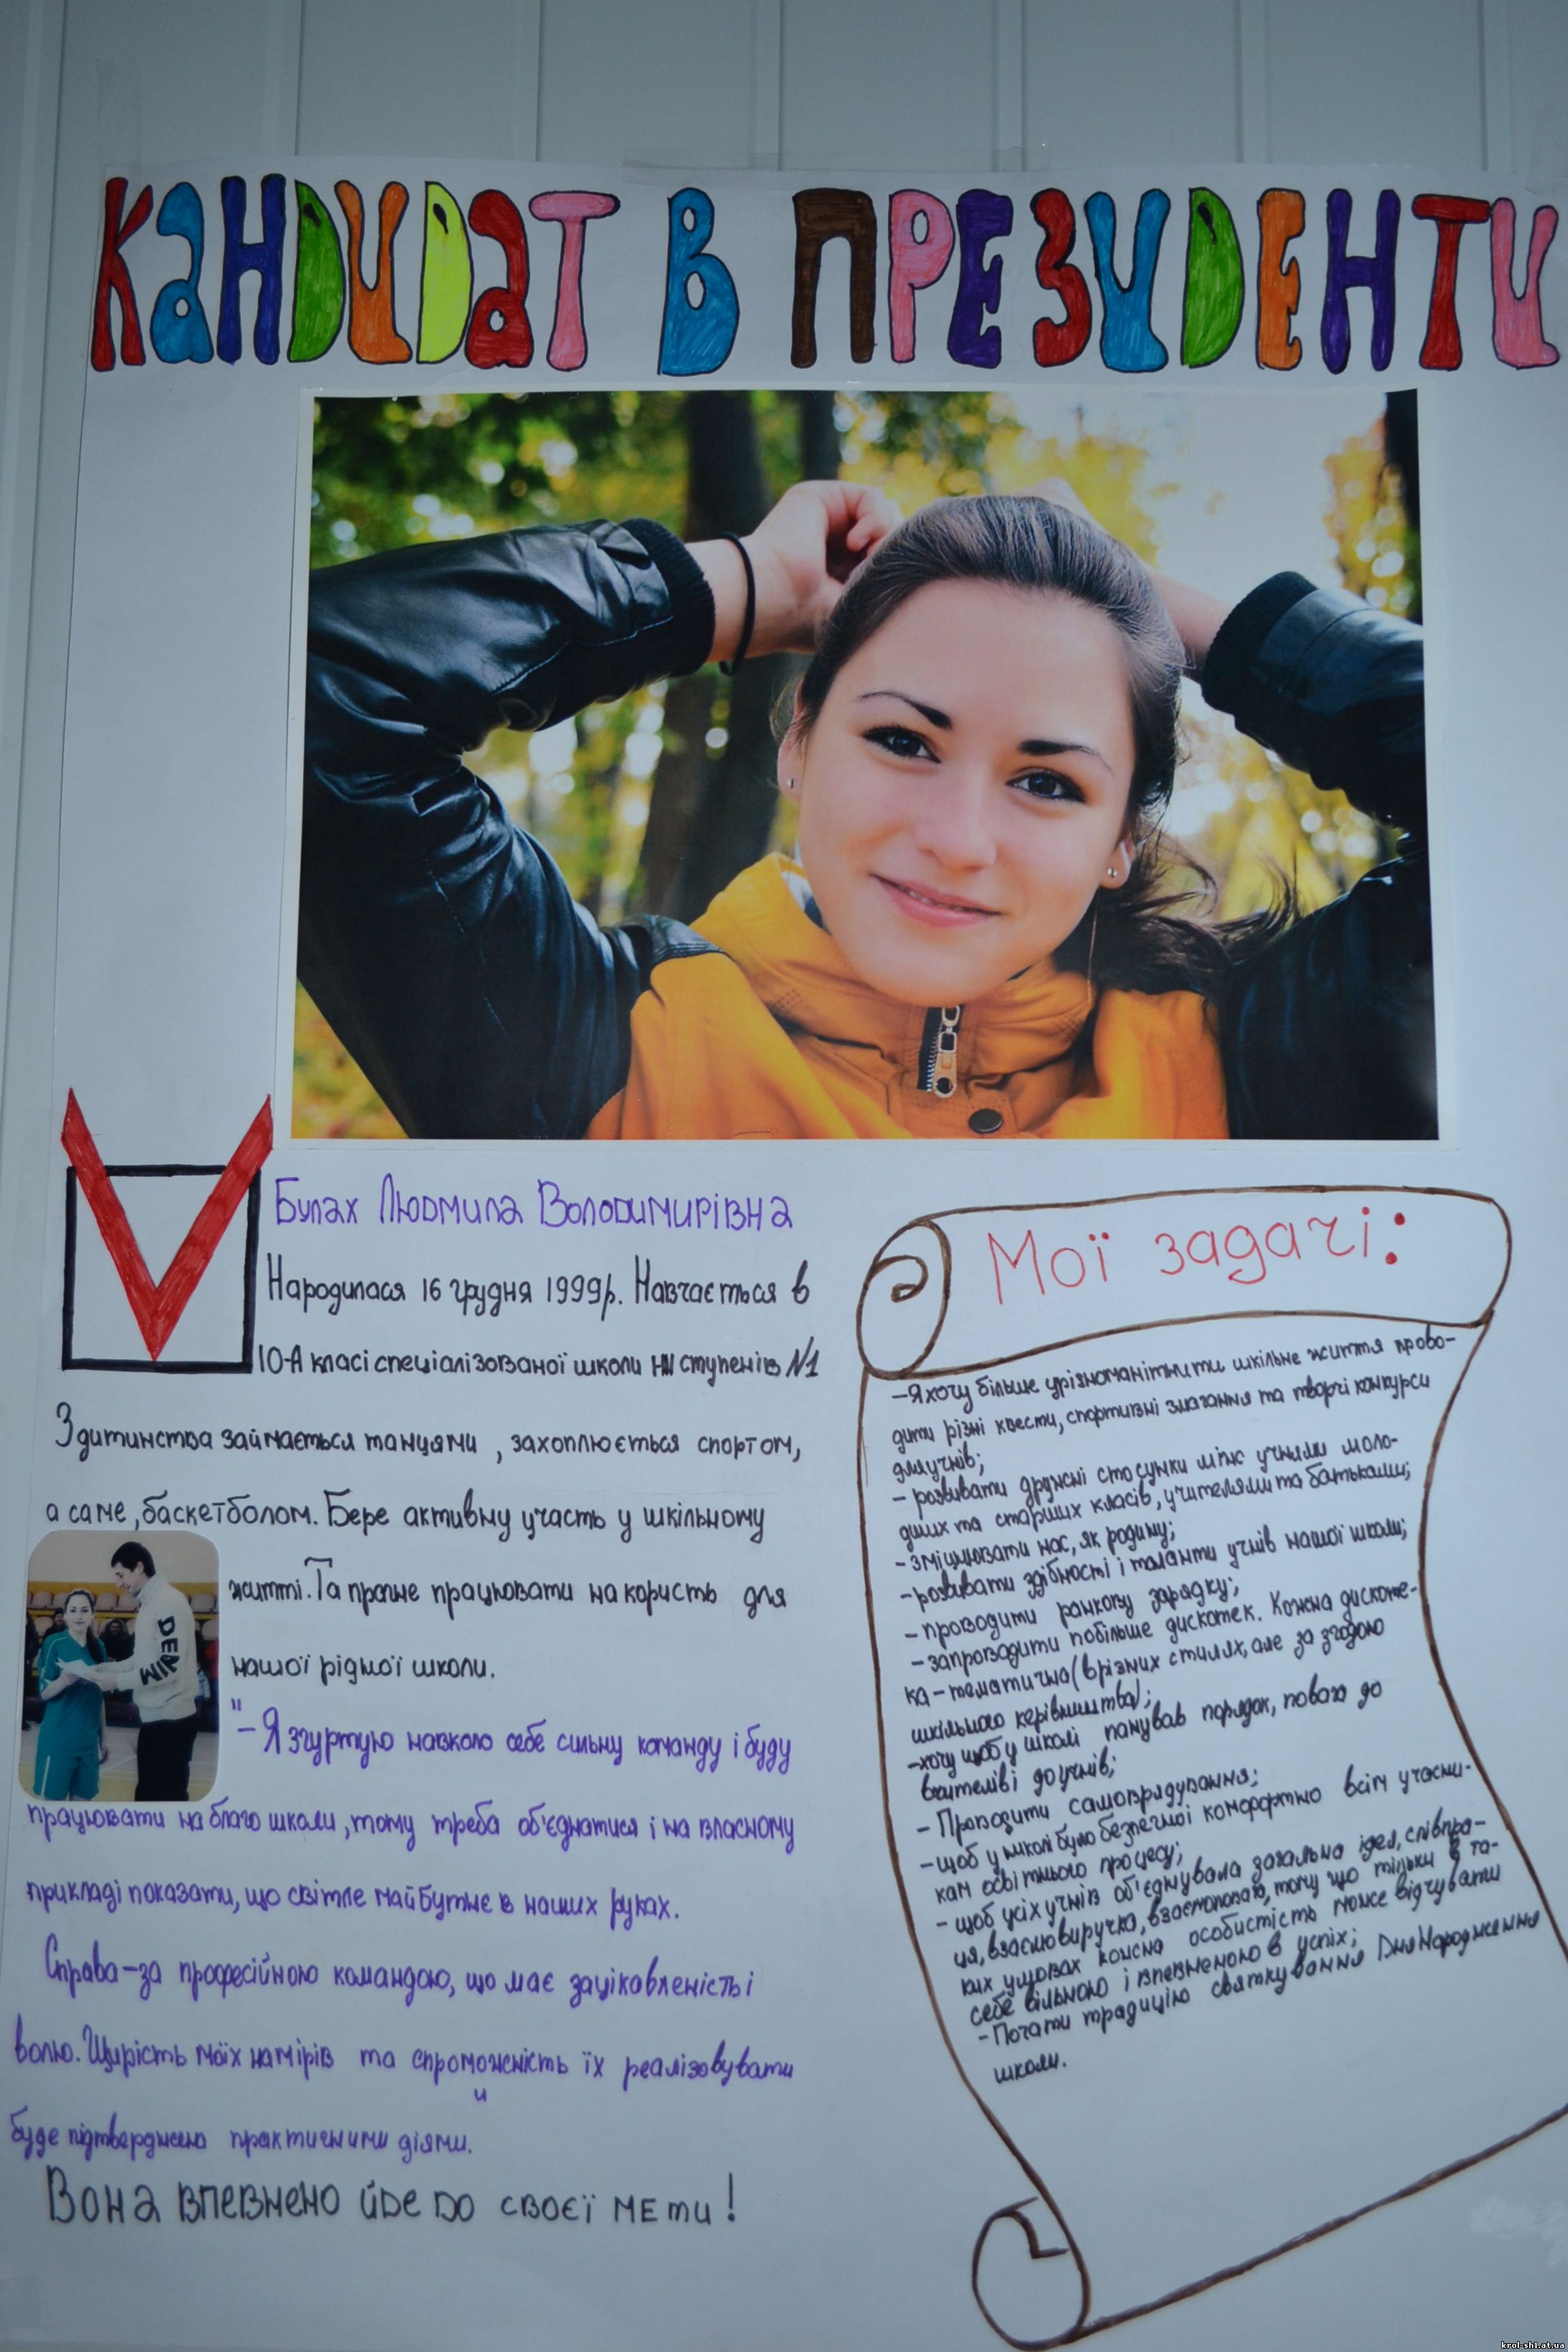 КАНДИДАТ В ПРЕЗИДЕНТИ
Булах Людмила Володимирівна
Народилася 16 грудня 1999р. Навчається в
10-А класі спеціалізованої школи ступенів №1
З дитинства займається танцями, захоплюється спортом,
а саме, баскетболом. Бере активну участь у шкільному
житті. Та прагне працювати на користь для
нашої рідної школи.
DENIM
"- Я згуртую навколо себе сильну команду і буду
працювати на благо школи, тому треба об'єднатися і на власному
прикладі показати, що світле майбутнє в наших руках.
Справа-за професійною командою, що має зацікавленість і
волю. Щирість моїх намірів та спроможність їх реалізовувати
буде підтверджено практичними діями."
Вона впевнено йде до своєї мети!
Мої задачі:
-Я хочу більше урізноманітнити шкільне життя прово-
дити різні квести, спортивні змагання та творчі конкурси
для учнів;
- розвивати дружні стосунки між учнями моло-
дших та старших класів, учителями та батьками;
- зміцнювати нас, як родину;
- розвивати здібності і таланти учнів нашої школи;
- проводити ранкову зарядку;
- запроводити побільше дискотек. Кожна дискоте-
ка - тематична (в різних стилях, але за згодою
шкільного керівництва);
-хочу щоб у школі панував порядок, повага до
вчителів і до учнів;
- Проводити самоврядування;
- щоб у школі було безпечно і комфортно всім учасни-
кам освітнього процесу;
- щоб усіх учнів об'єднувала загальна ідея, співпра-
ця, взаємовиручка, взаємоповага, тому що тільки в та-
ких умовах кожна особистість може відчувати
себе вільною і впевненою в успіх;
- Почати традицію святкування Дня Народження
школи.
krol-sh1.at.ua